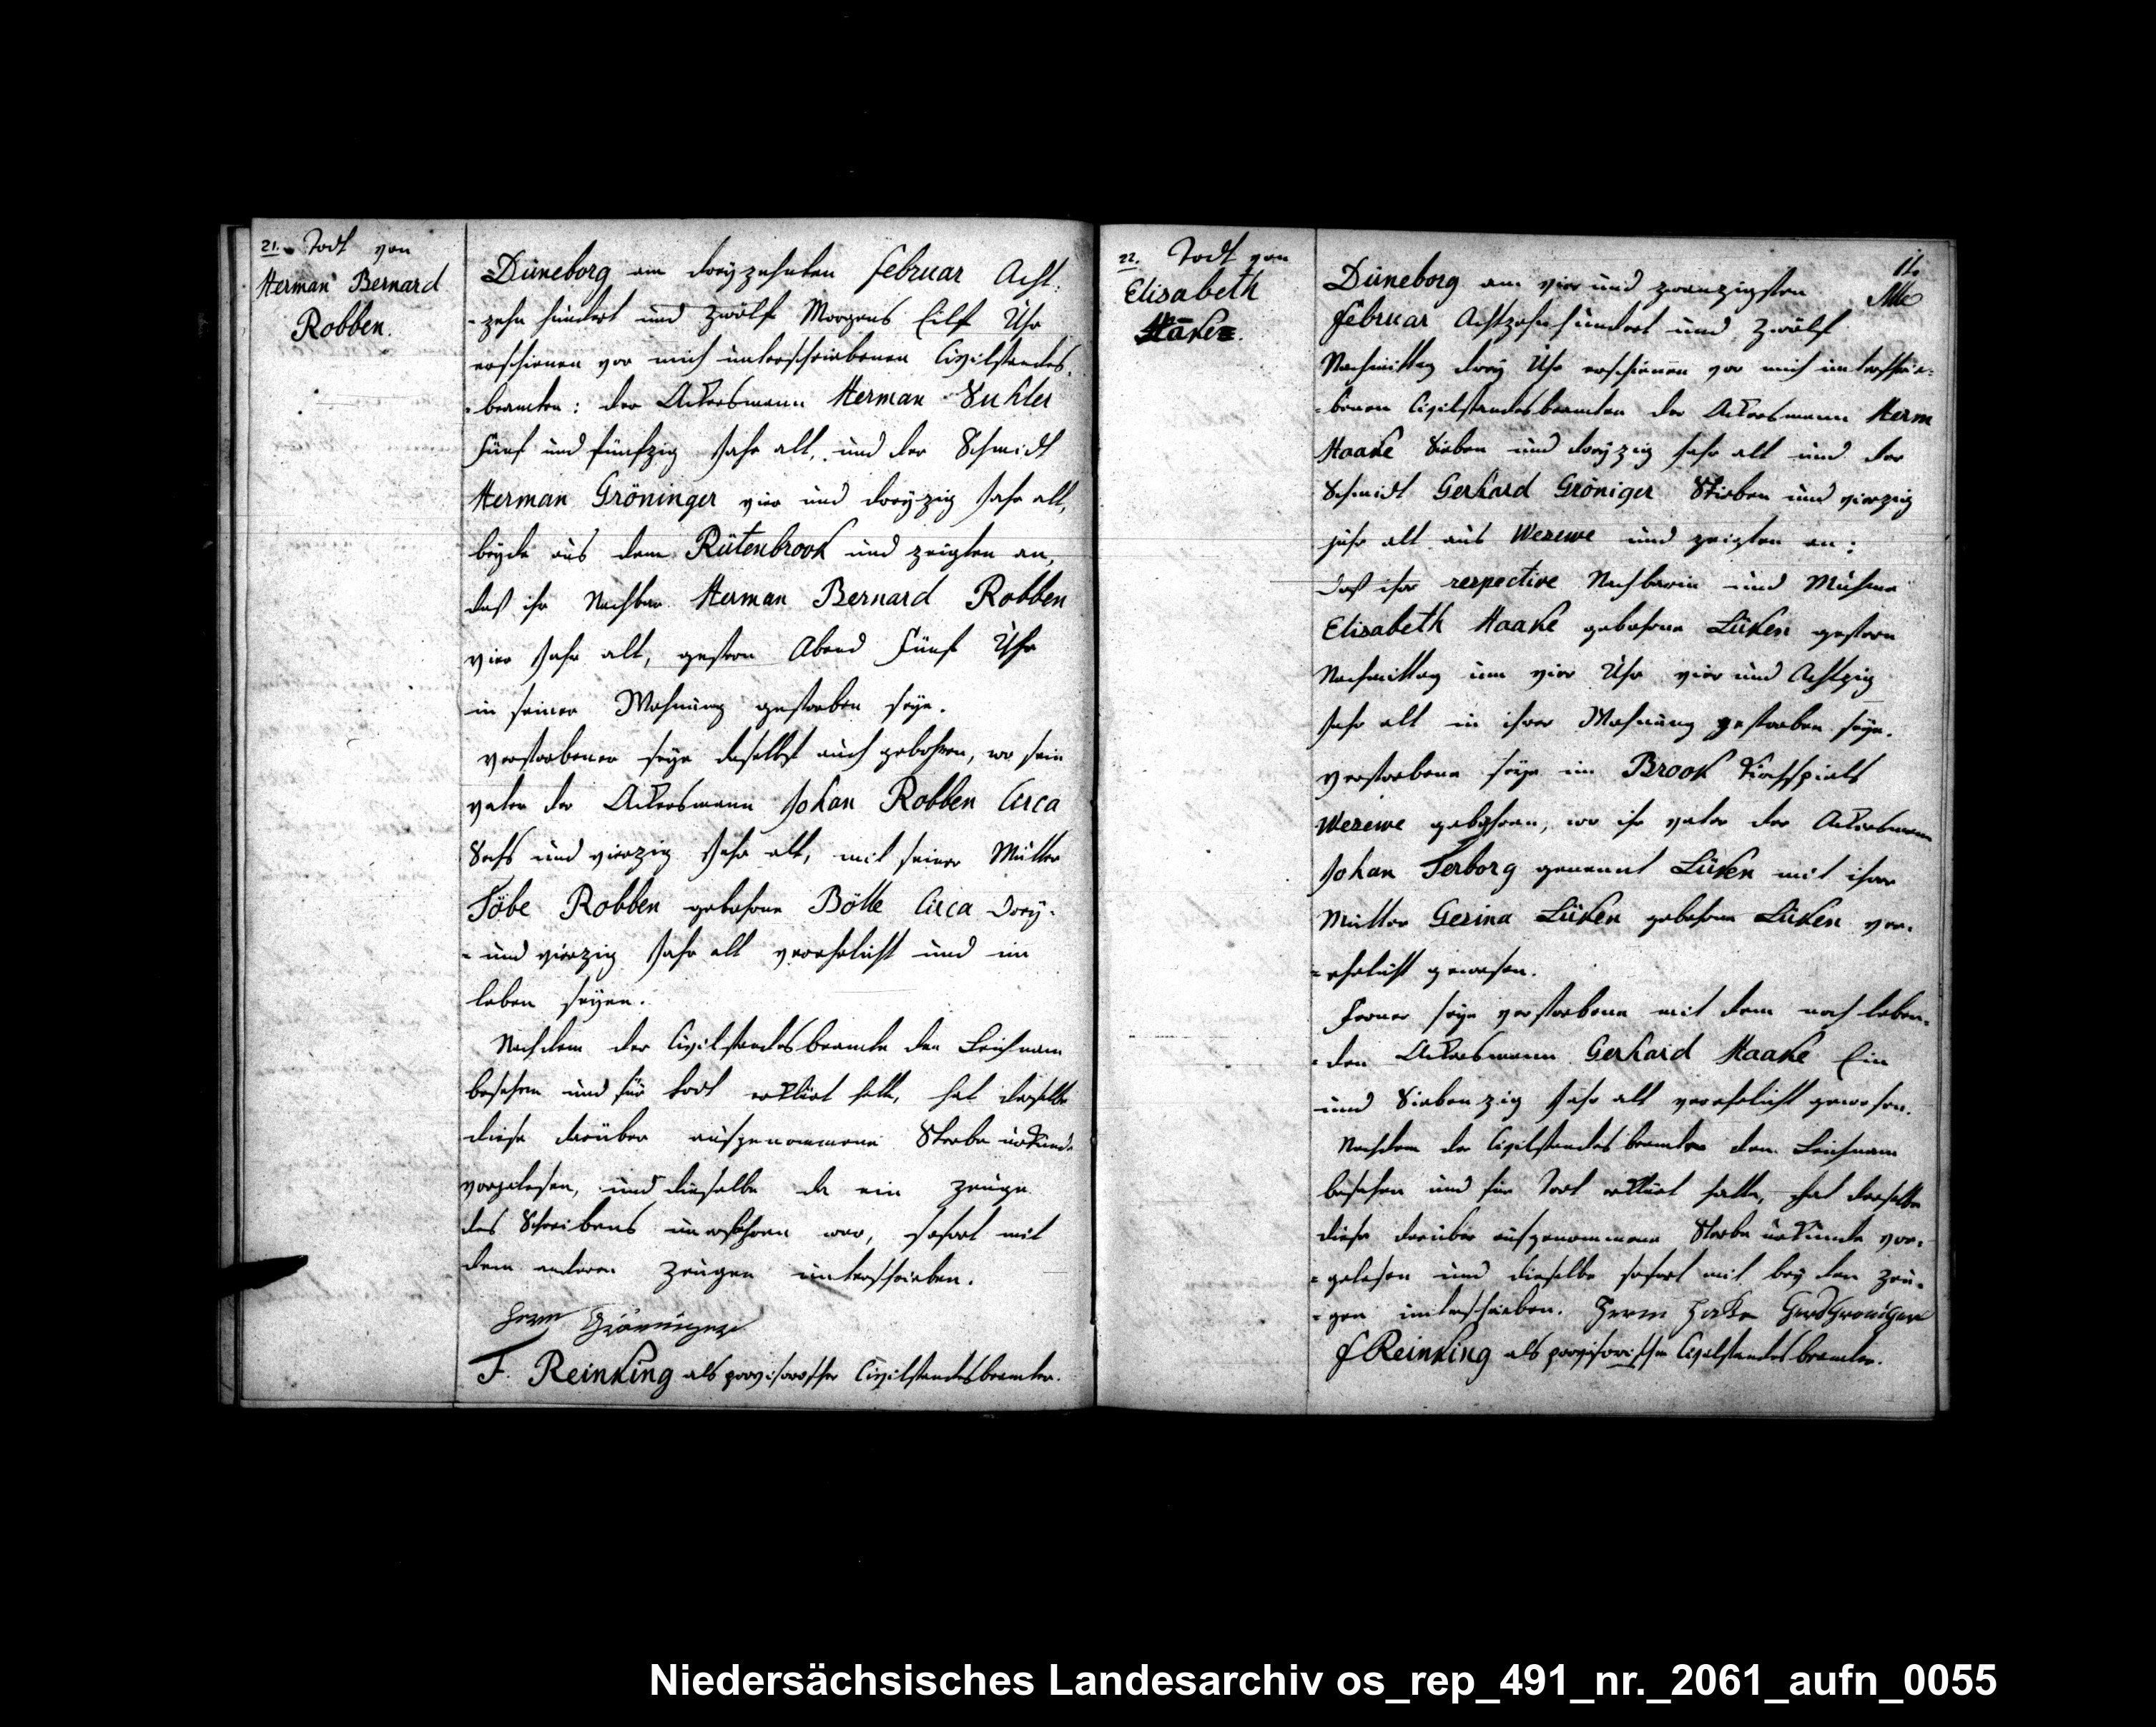 21. Todt von
Herman Bernard
Robben.
Düneborg am dreyzehnten februar Acht-
-zehn hundert und zwölf Morgens Eilf Uhr
erschienen vor mich unterschriebenen Civilstandes-
-beamten: der Ackersmann Herman Suhler
fünf und fünfzig Jahr alt, und der Schmidt
Herman Gröninger vier und dreyzig Jahr alt,
beyde aus dem Rütenbrook und zeigten an,
daß ihr Nachbar Herman Bernard Robben
vier Jahr alt, gestern Abend Fünf Uhr
in seiner Wohnung gestorben seye.
verstorbener seye daselbst auch gebohren, wo sein
vater der Ackersmann Johan Robben Circa
Sechs und vierzig Jahr alt, mit seiner Mutter
Töbe Robben gebohrne Bölle Circa Drey-
-und vierzig Jahr alt verehelicht und im
leben seyen.
Nachdem der Civilstandesbeamte den Leichnam
besehen und für todt erklärt hatte, hat derselbe
diese darüber aufgenommene Sterbe urkunde
vorgelesen, und dieselbe da ein Zeuge
des Schreibens unerfahren war, sofort mit
dem anderen Zeugen unterschrieben.
Herm Gröninger
F. Reinking als provisorischer Civilstandesbeamter.
22. Todt von
Elisabeth
Haake.
11.
Düneborg am vier und zwanzigsten
februar Achtzehnhundert und Zwölf
Nachmittag drey Uhr erschienen vor mich unterschrie-
-benen Civilstandesbeamten der Ackersmann Herm
Haake Sieben und dreyzig Jahr alt und der
Schmidt Gerhard Gröniger Sieben und vierzig
jahr alt aus Wesewe und zeigten an:
Daß ihre respective Nachbarin und Muhme
Elisabeth Haake gebohrne Lüken gestern
Nachmittag um vier Uhr vier und Achtzig
Jahr alt in ihrer Wohnung gestorben seye.
verstorbene seye im Brook Kirchspiels
Wesewe gebohren, wo ihr vater der Ackersmann
Johan Terborg genannt Lüken mit ihrer
Mutter Gesina Lüken gebohrne Lüken ver-
-ehelicht gewesen.
Ferner seye verstorbene mit dem noch leben-
-den Ackersmann Gerhard Haake Ein
und Siebenzig Jahr alt verehelicht gewesen.
Nachdem der Civilstandesbeamter den Leichnam
besehen und für Todt erklärt hatte, hat derselbe
diese darüber aufgenommene Sterbe urkunde vor-
-gelesen und dieselbe sofort mit beyden Zeu-
-gen unterschrieben. Herm Hake Gerd Groniger
F Reinking als provisorischer Civilstandesbeamter.
Niedersächsisches Landesarchiv os_rep_491_nr._2061_aufn_0055